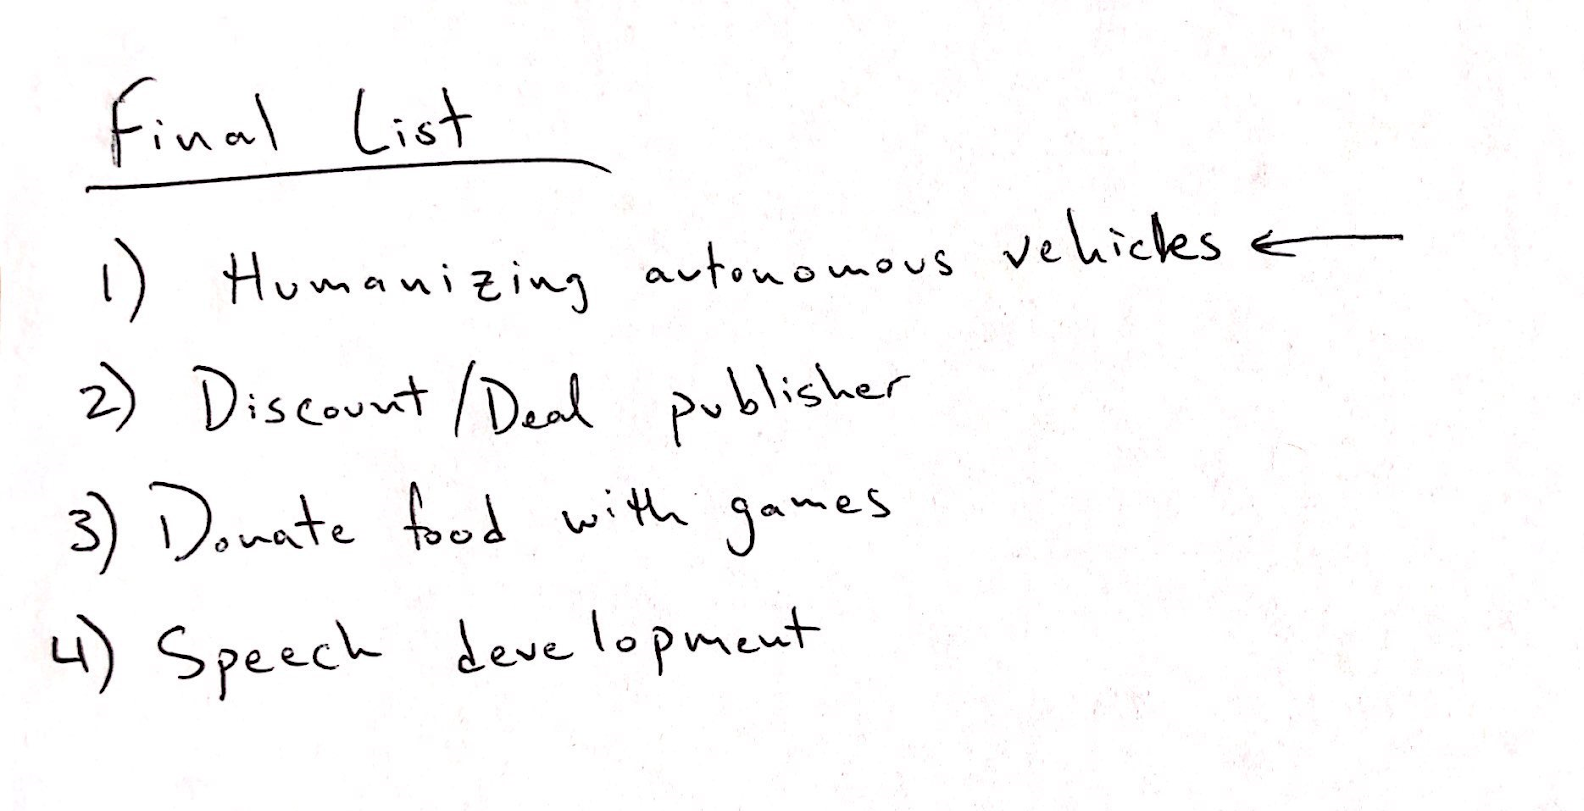 Final List
1) Humanizing autonomous vehicles ←
2) Discount/Deal publisher
3) Donate food with games
4) Speech development